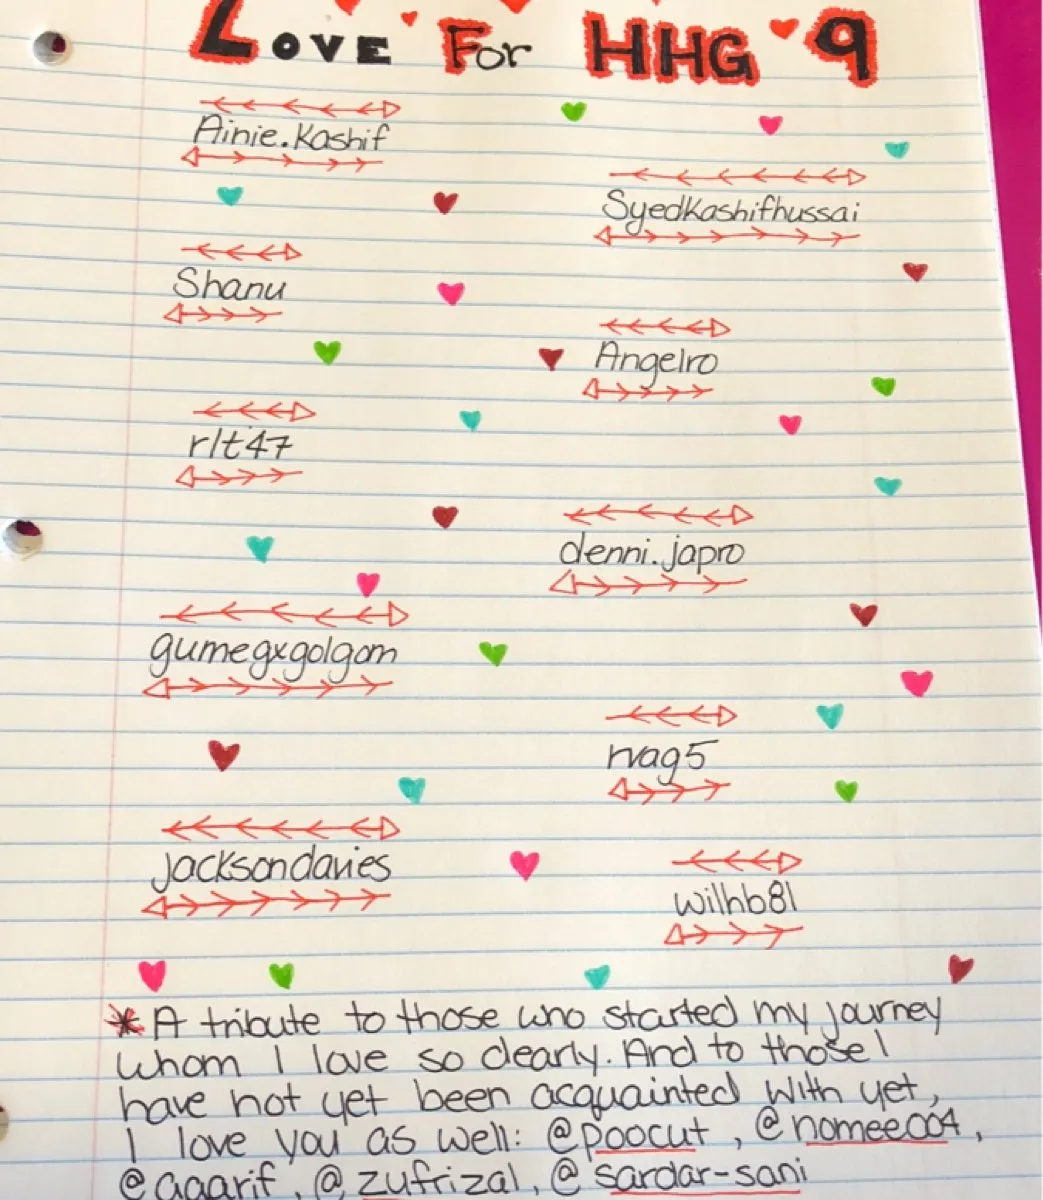 Love For HHG 9
Ainie.Kashif
Syedkashifhussai
Shanu
Angelro
rlt47
denni.japro
gumegxgolgom
rvag5
jacksondavies
wilhb81
* A tribute to those who started my journey
whom I love so dearly. And to those I
have not yet been acquainted with yet,
I love you as well: @poocut, @nomee004,
@aaarif, @zufrizal, @sardar-sani